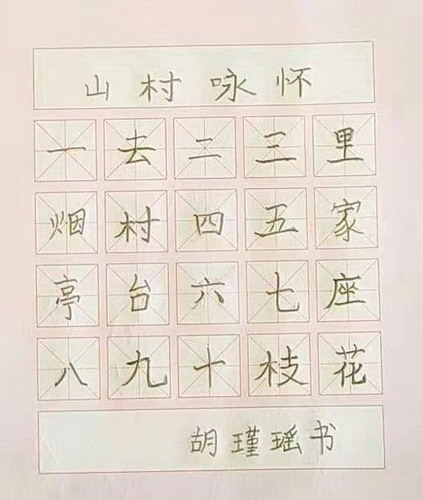 山村咏怀
一去二三里
烟村四五家
亭台六七座
八九十枝花
胡瑾瑶书